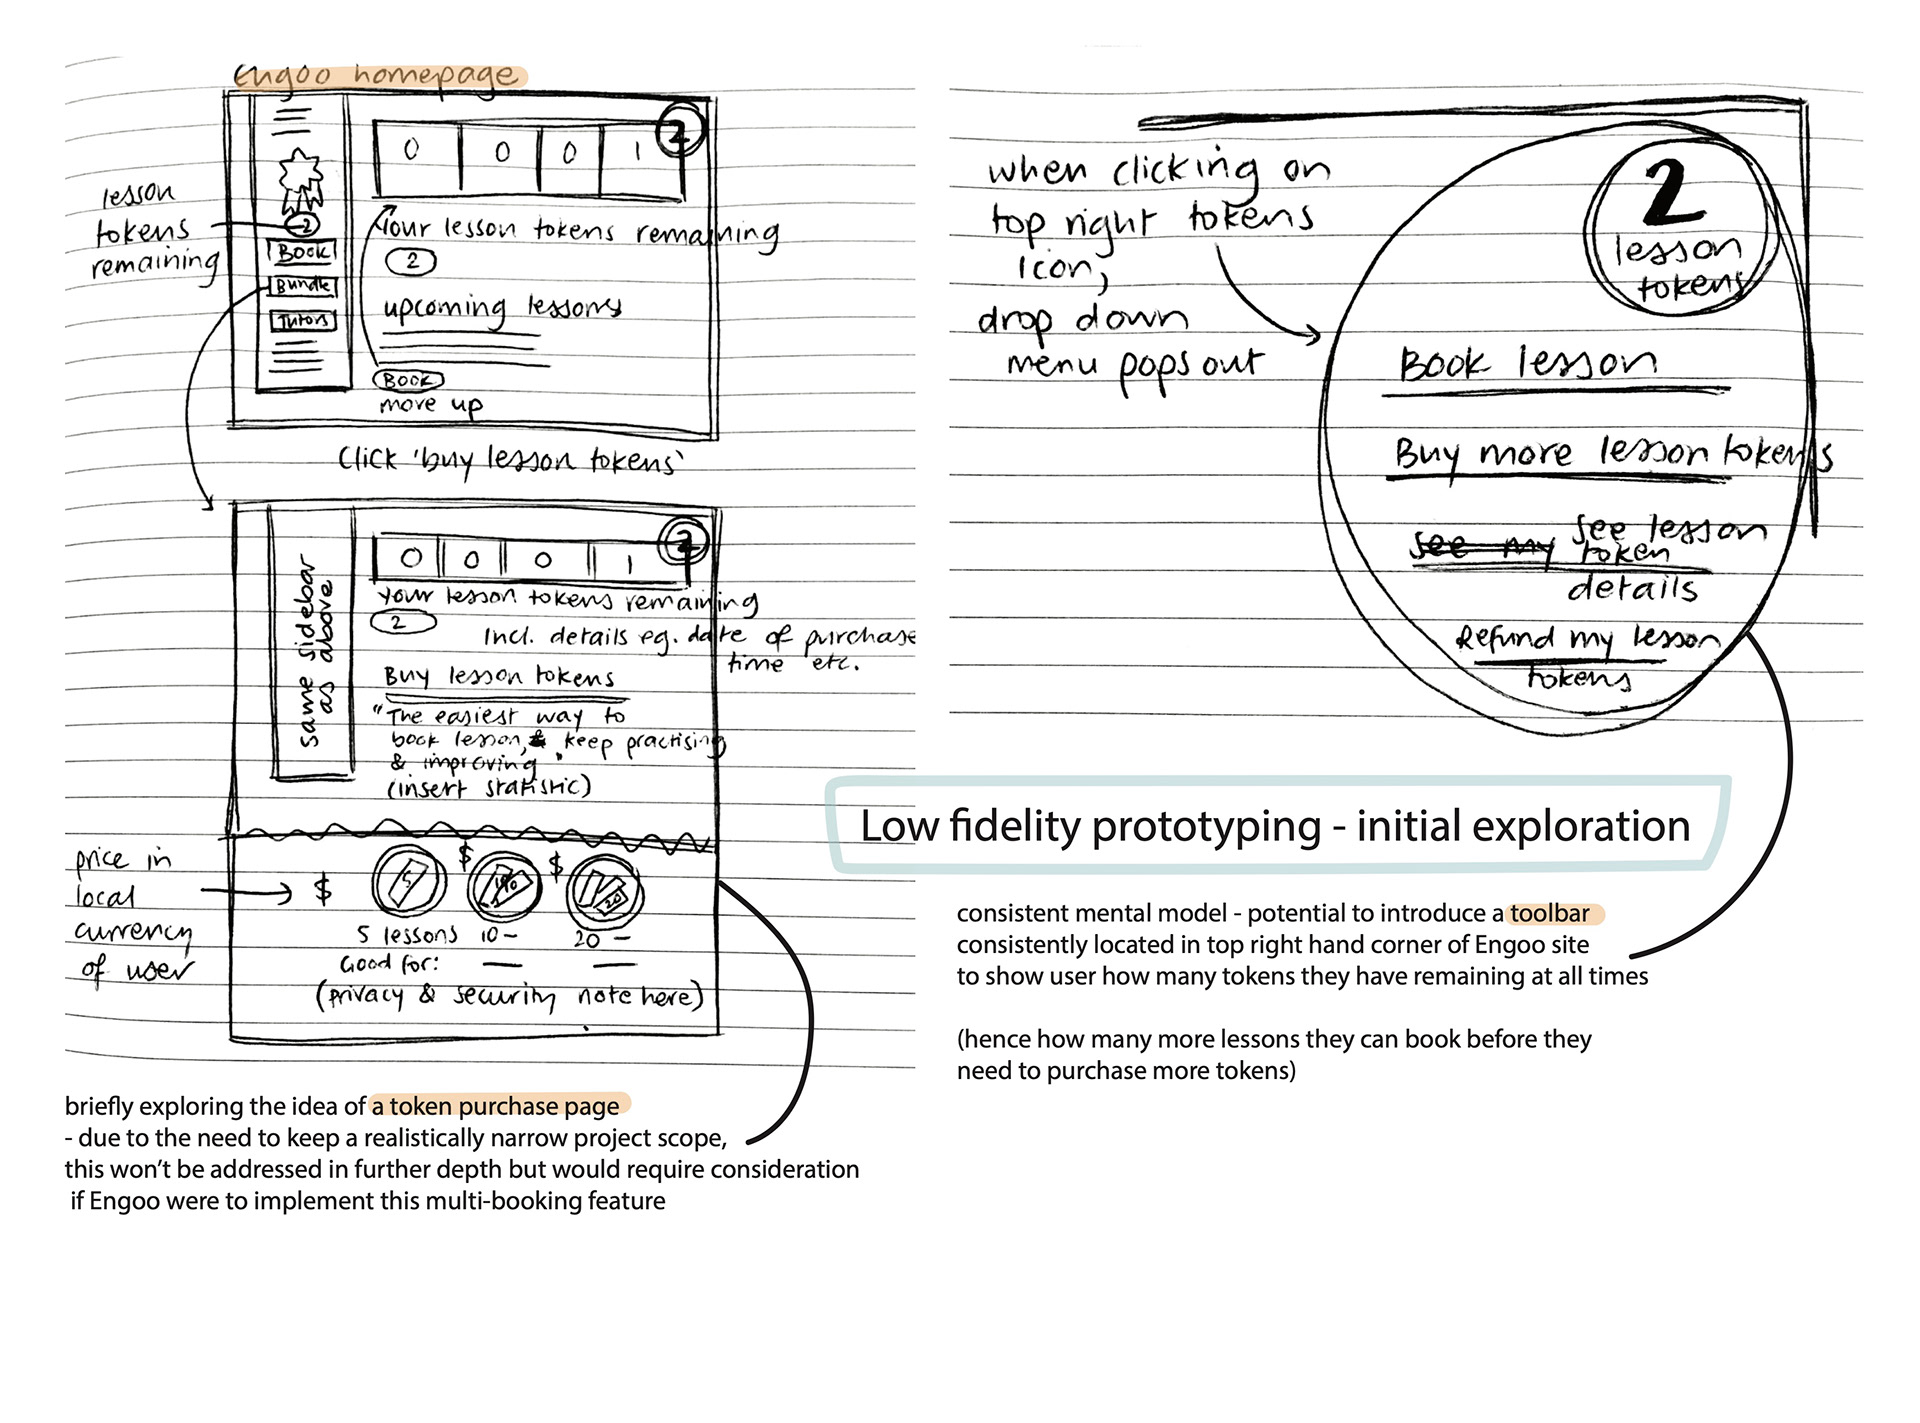 engoo homepage
lesson
tokens
remaining
2
Book
Bundle
Tutors
0 0 0 1 2
Your lesson tokens remaining
2
upcoming lessons
Book
move up
Click 'buy lesson tokens'
same sidebar
as above
0 0 0 1 2
your lesson tokens remaining
2
Incl. details eg. date of purchase
time etc.
Buy lesson tokens
"The easiest way to
book lesson, & keep practising
& improving"
(insert statistic)
price in
local
currency
of user
$ 5 $ 10 $ 20
5 lessons 10- 20-
Good for:
(privacy & security note here)
briefly exploring the idea of a token purchase page
- due to the need to keep a realistically narrow project scope,
this won't be addressed in further depth but would require consideration
if Engoo were to implement this multi-booking feature
when clicking on
top right tokens
icon,
drop down
menu pops out
2
lesson
tokens
Book lesson
Buy more lesson tokens
see my see lesson
token
details
Refund my lesson
tokens
Low fidelity prototyping - initial exploration
consistent mental model - potential to introduce a toolbar
consistently located in top right hand corner of Engoo site
to show user how many tokens they have remaining at all times
(hence how many more lessons they can book before they
need to purchase more tokens)